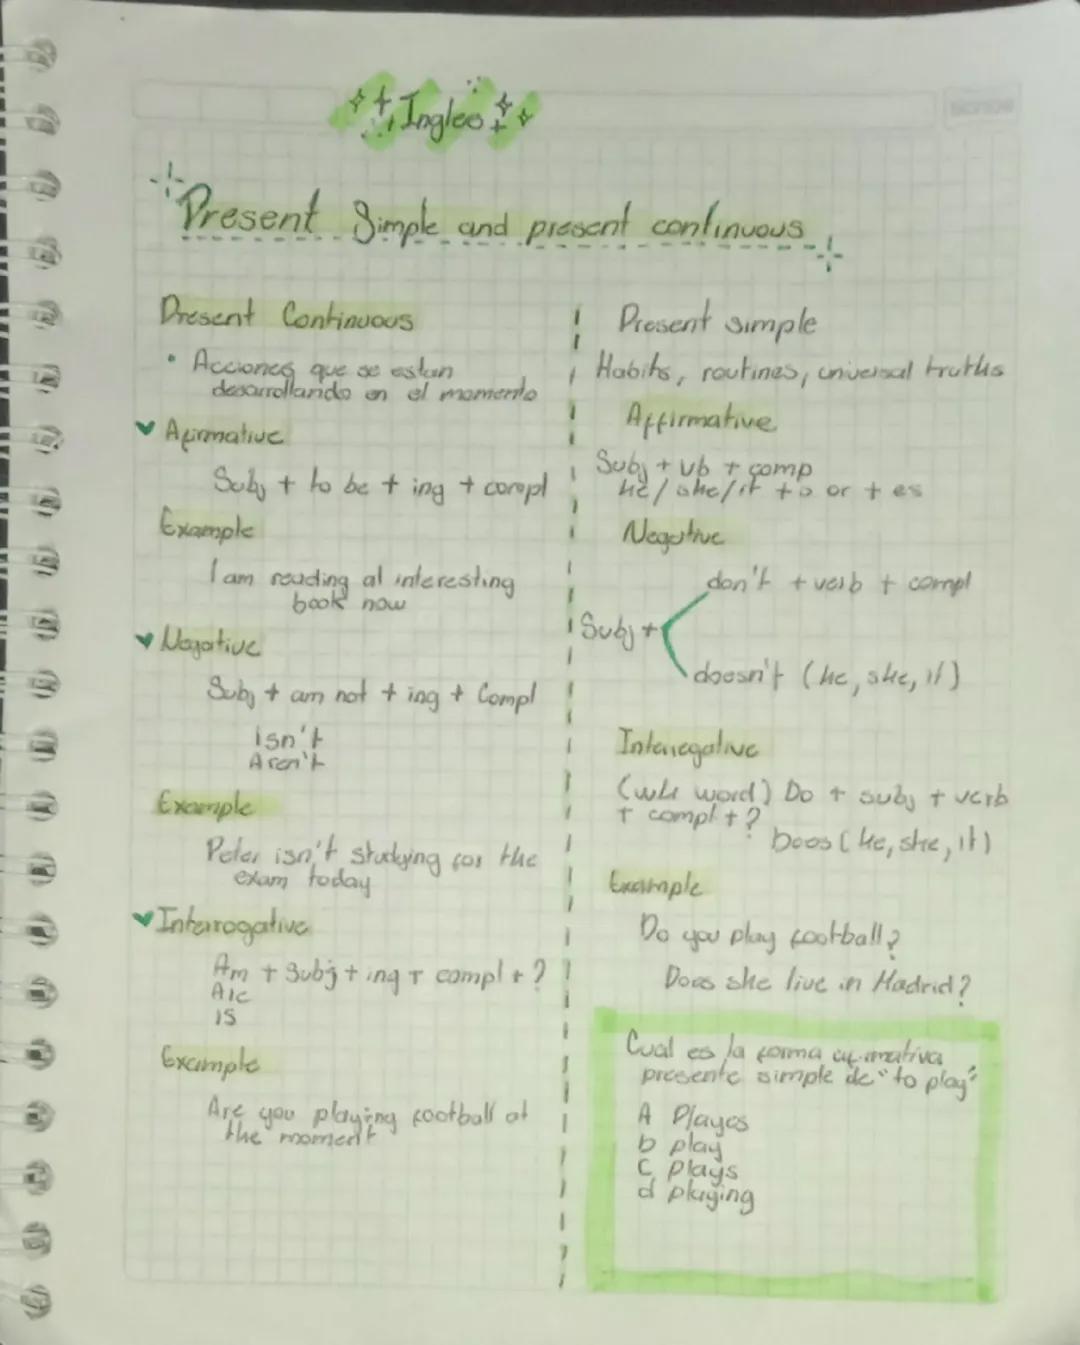 Ingles
Present Simple and present continuous
Present Continuous
• Acciones que se estan
desarrollando en el momento
Afirmative
Subj + to be + ing + compl
Example
I am reading al interesting
book now
Negative
Subj + am not + ing + Compl
isn't
Aren't
Example
Peter isn't studying for the
exam today
Interrogative
Am + Subj + ing + compl + ?
Are
is
Example
Are you playing football at
the moment
Present simple
Habits, routines, universal truths
Affirmative
Subj + vb + comp
he/she/it + s or + es
Negative
don't + verb + compl
Subj +
doesn't (he, she, it)
Interregative
(wh word) Do + subj + verb
+ compl + ?
Does (he, she, it)
Example
Do you play football?
Does she live in Madrid?
Cual es la forma afirmativa
presente simple de "to play"
A Playes
b play
C plays
d playing